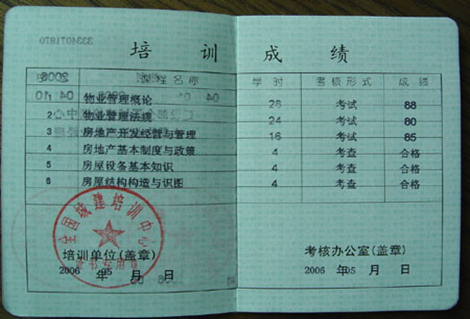 培训成绩
课程名称 学时 考核形式 成绩
1 物业管理概论 28 考试 88
2 物业管理法规 24 考试 80
3 房地产开发经营与管理 16 考试 85
4 房地产基本制度与政策 4 考查 合格
5 房屋设备基本知识 4 考查 合格
6 房屋结构构造与识图 4 考查 合格
城建培训中心
证书专用章
培训单位(盖章) 考核办公室(盖章)
2006 年 05 月 日 2006 年 05 月 日